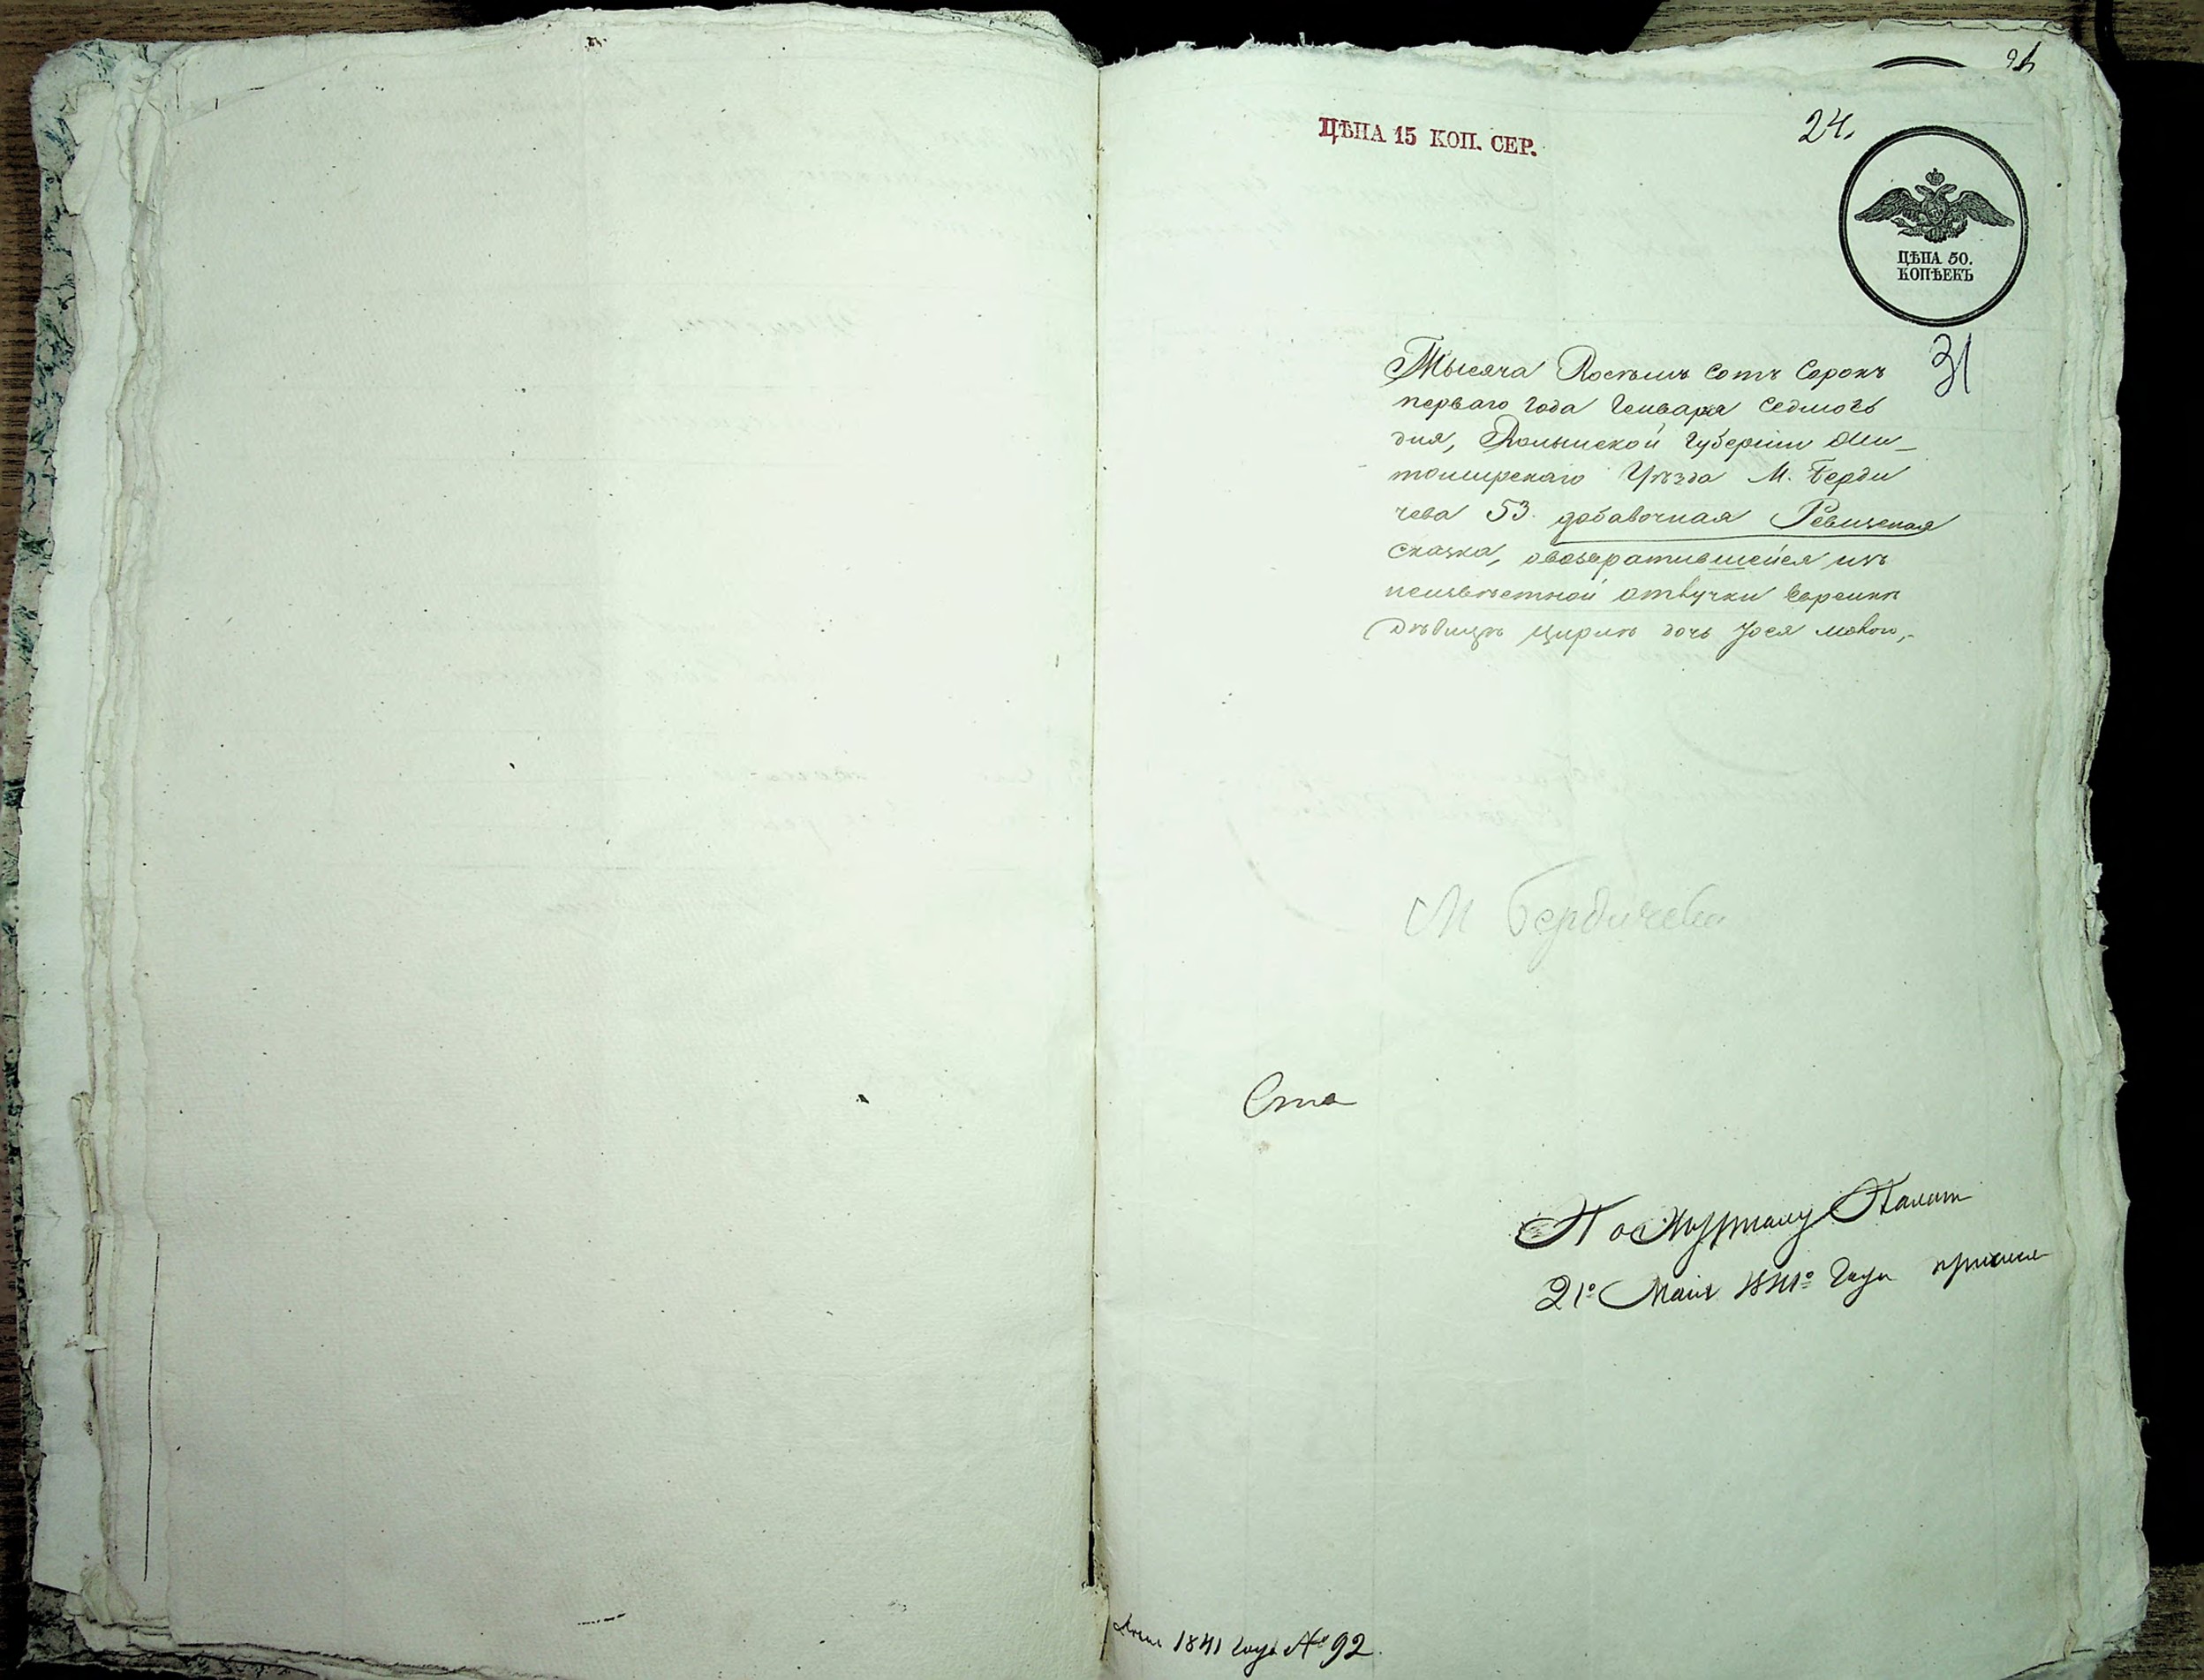 ЦѢНА 15 КОП. СЕР.
24.
ЦѢНА 50.
КОПѢЕКЪ
31
Тысяча Восемь сотъ сорокъ
перваго года Генваря седмаго
дня, Волынской Губерніи Жи_
томирскаго Уѣзда М. Берди
чева 53. добавочная Ревизская
сказка, овозвратившейся изъ
неизвѣстной отлучки Еврейкѣ
Дѣвицѣ Циринѣ дочь Іося
М Бердичева
По Журналу Палат
21º Маія 1841º Года
1841 года № 92.